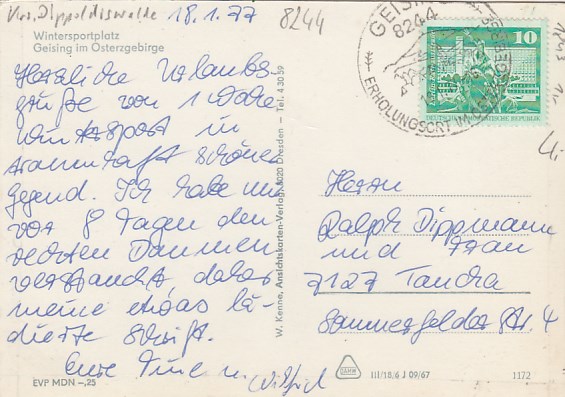 Krs. Dippoldiswalde 18.1.77 8244
Wintersportplatz
Geising im Osterzgebirge
Herzliche Urlaubs
grüße von 1 Woche
Wintersport in
traumhaft schöner
Gegend. Ich habe mir
vor 8 Tagen den
rechten Daumen
verstaucht, daher
meine etwas lä-
dierte Schrift.
Eure
u. Wilfried
EVP MDN –,25
W. Kenne, Ansichtskarten-Verlag, 8020 Dresden – Tel. 4 30 59
GEISING
8244
ERHOLUNGSORT IM
10
DEUTSCHE DEMOKRATISCHE REPUBLIK
Herrn
Ralph Dippmann
und Frau
7127 Taucha
Sommerfelder Str. 4
III/18/6 J 09/67 1172